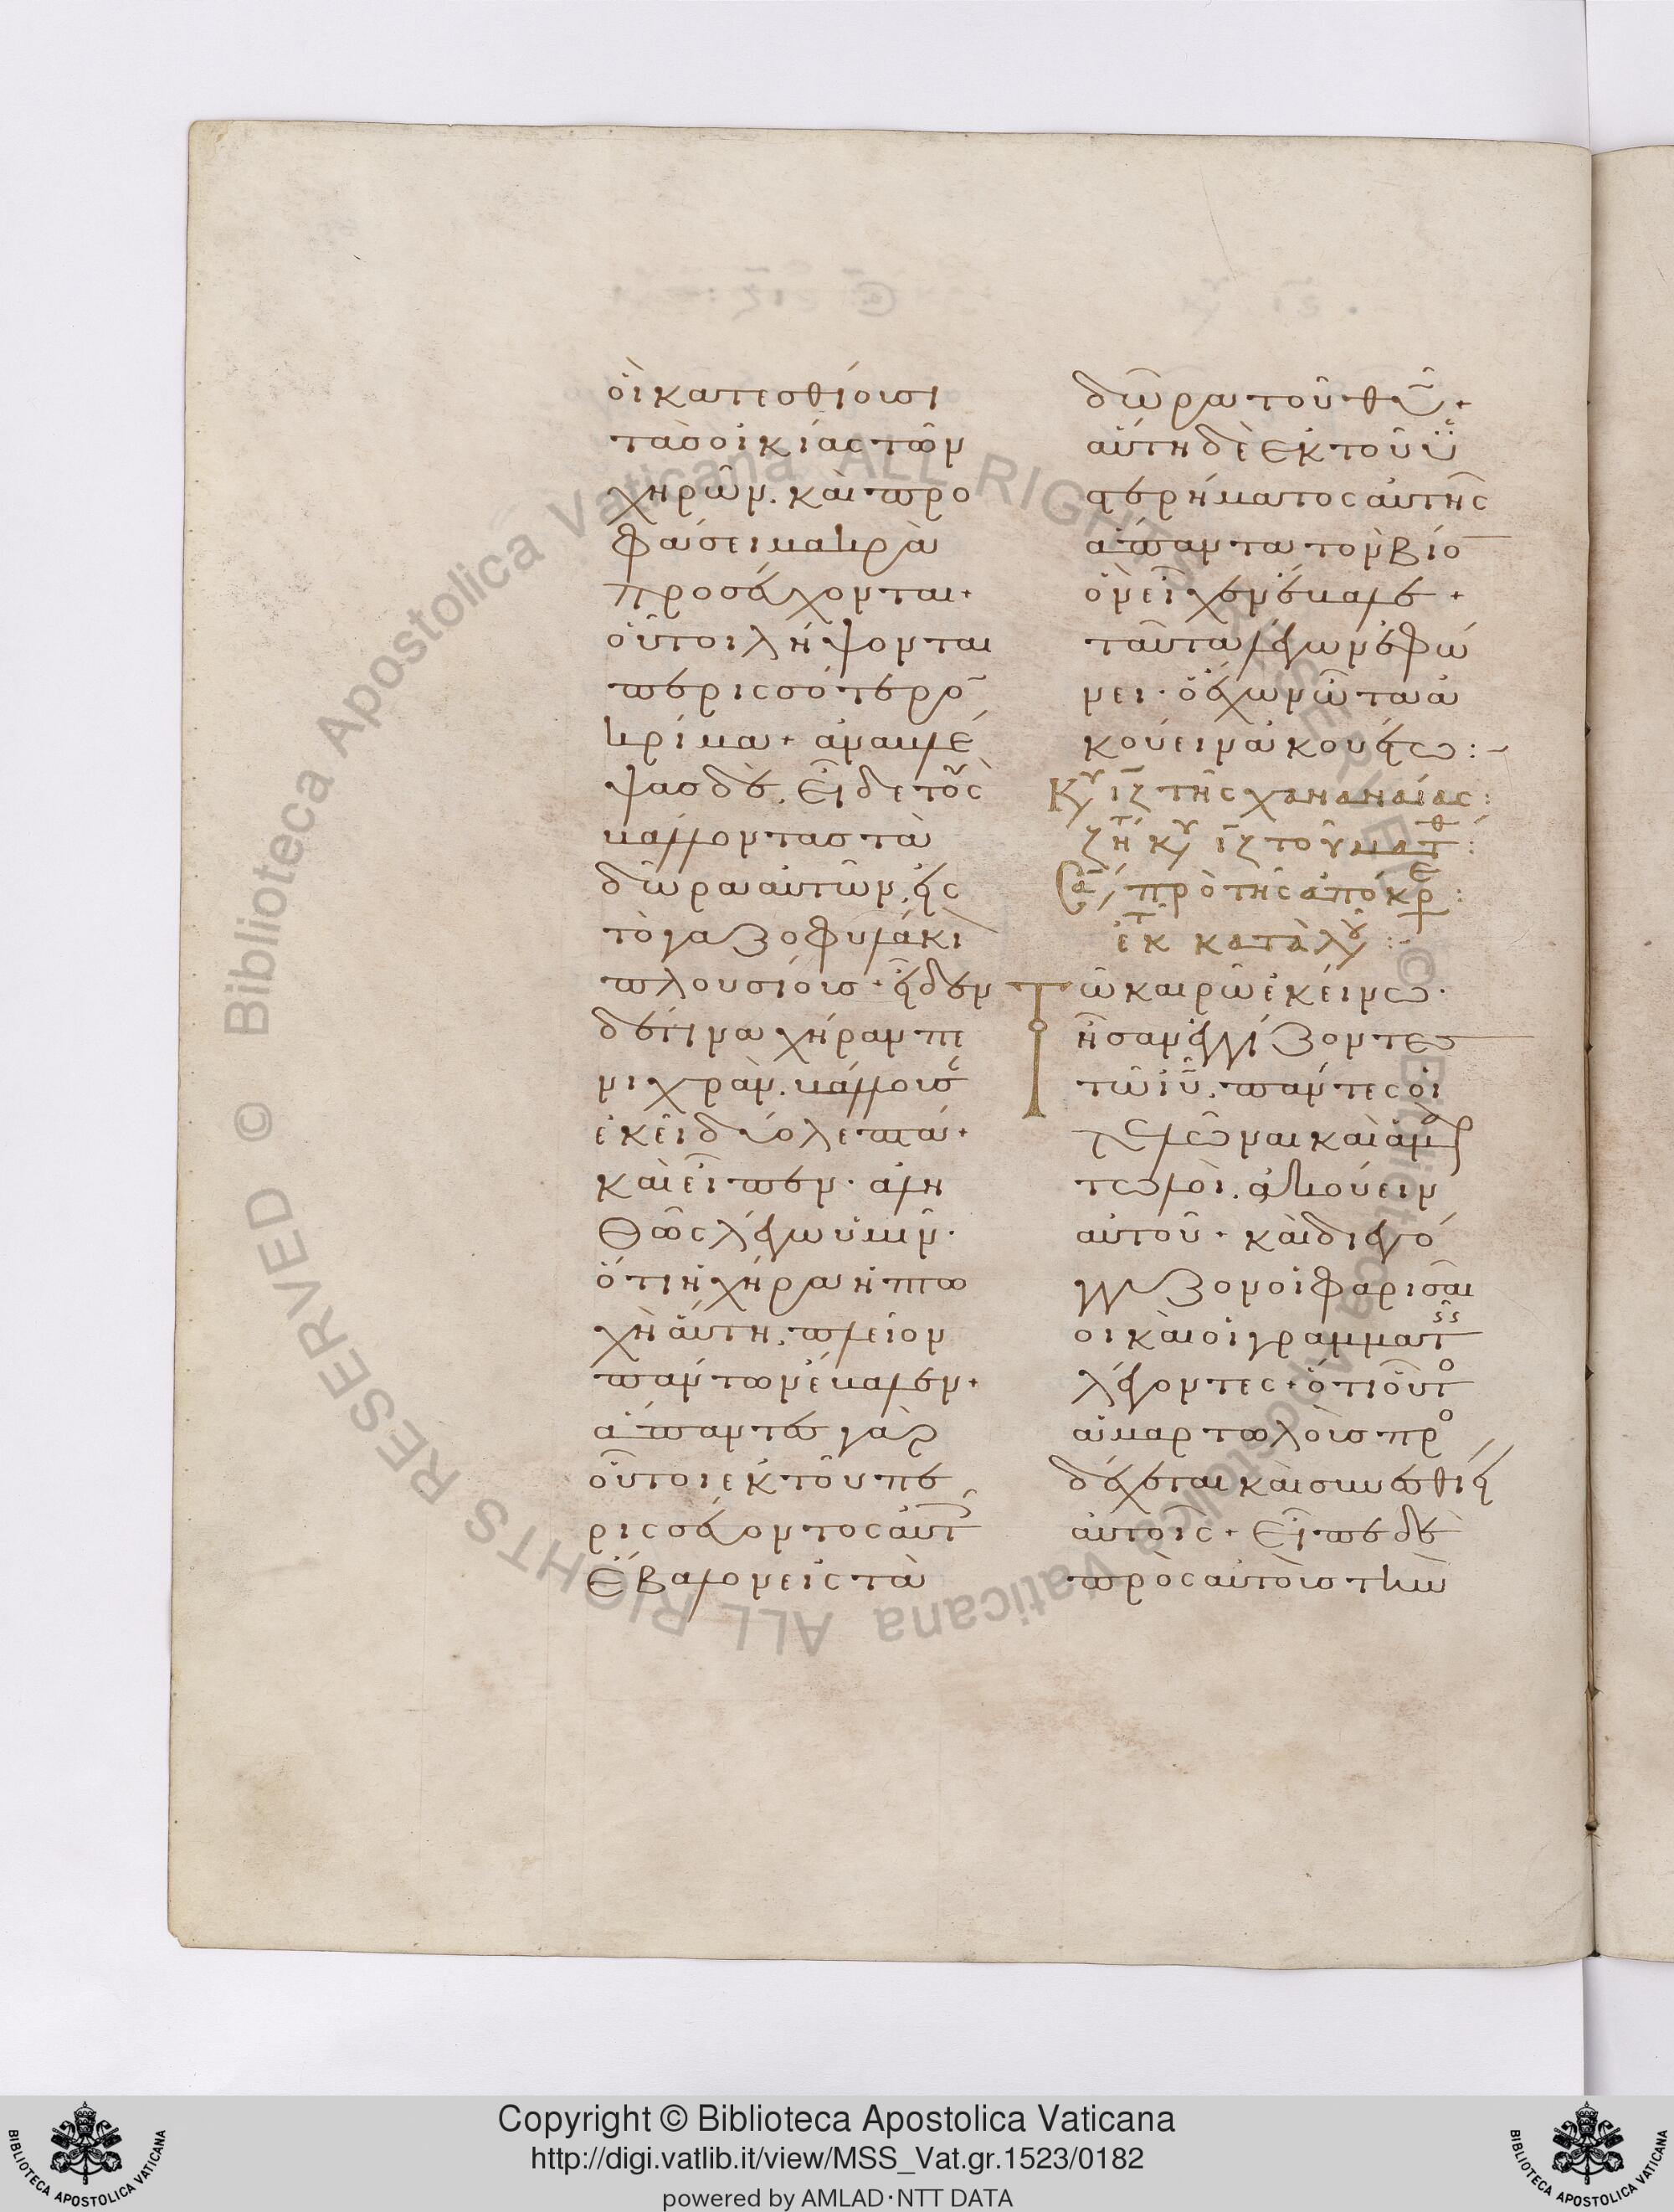 οἱ κατεσθίουσι
τὰς οἰκίας τῶν
χηρῶν. καὶ προ
φάσει μακρὰ
προσεύχονται+
οὗτοι λήψονται
περισσότερο̅
κρίμα+ ἀναβλέ
ψας δὲ. εἶδε τοὺς
βάλλοντας τὰ
δῶρα αὐτῶν, εἰς
τὸ γαζοφυλάκι
πλουσίους· εἶδεν
δέ τινα χήραν πε
νιχράν. βάλλουσ
ἐκεῖ δύο λεπτά+
καὶ εἶπεν· ἀλη
θῶς λέγω ὑμῖν·
ὅτι ἡ χήρα ἡ πτω
χὴ αὕτη, πλεῖον
πάντων ἔβαλεν+
ἅπαντες γὰρ
οὗτοι ἐκ τοῦ πε
ρισσεύοντος αὐτ
ἔβαλον εἰς τὰ
δῶρα τοῦ θυ̅+
αὕτη δὲ ἐκ τοῦ ὑ
στερήματος αὐτῆς
ἅπαντα τὸν βίο̅
ὃν εἶχεν ἔβαλε+
ταῦτα λέγων ἐφώ
νει· ὁ ἔχων ὦτα ἀ
κούειν ἀκουέτω:-
Κυ ιζ τῆς χαναναίας:
ζητ κυ ιζ τοῦ ματθ:
Σα πρὸ τῆς ἀπόκρε:
ἐκ τ κατὰ λου:-
Τῶ καιρῶ ἐκείνω·
ἦσαν ἐγγίζοντες
τῶ ιυ̅. πάντες οἱ
τελῶναι καὶ ἁμαρ
τωλοὶ. ἀκούειν
αὐτοῦ+ καὶ διεγό
γγυζον οἱ φαρισαῖ
οι καὶ οἱ γραμματ
λέγοντες+ ὅτι οὗτο
ἁμαρτωλοὺς προ
δέχεται καὶ συνεσθίει
αὐτοῖς+ εἶπε δὲ
πρὸς αὐτοὺς τὴν
Copyright © Biblioteca Apostolica Vaticana
http://digi.vatlib.it/view/MSS_Vat.gr.1523/0182
powered by AMLAD·NTT DATA